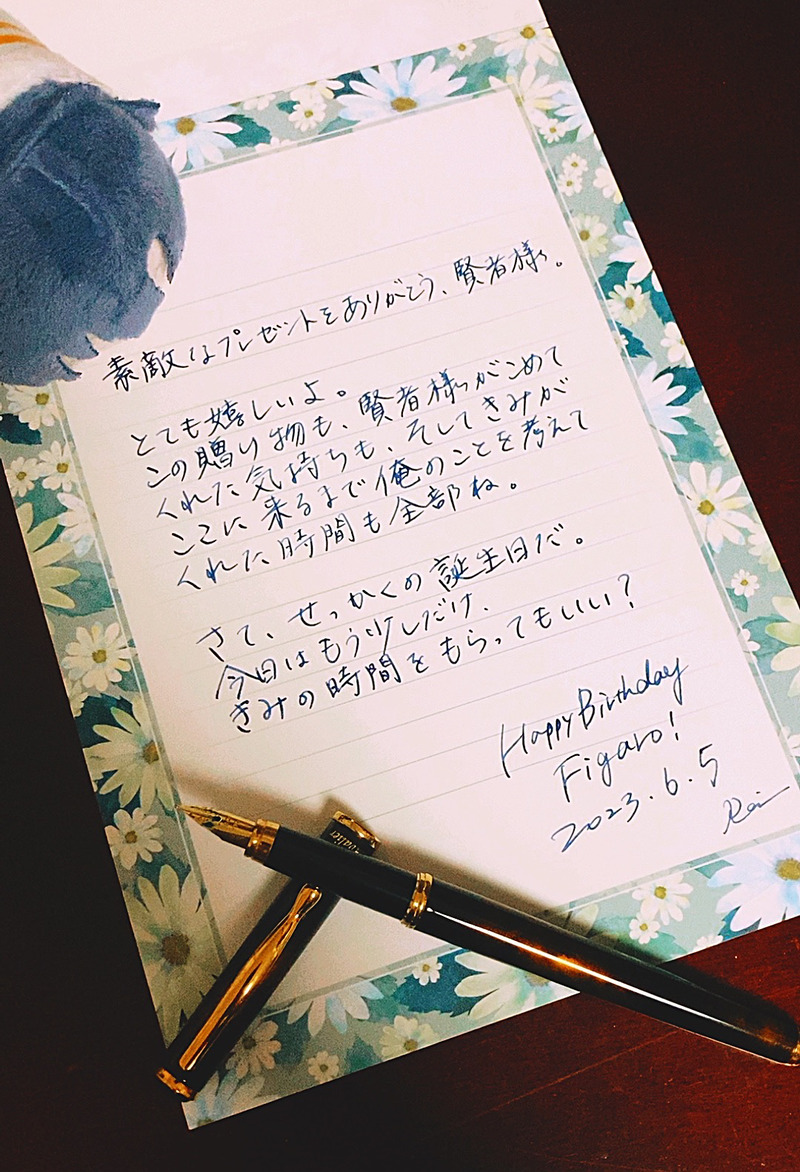 素敵なプレゼントをありがとう、賢者様。
とても嬉しいよ。
この贈り物も、賢者様がこめて
くれた気持ちも、そしてきみが
ここに来るまで俺のことを考えて
くれた時間も全部ね。
さて、せっかくの誕生日だ。
今日はもう少しだけ、
きみの時間をもらってもいい?
Happy Birthday
Figaro!
2023.6.5